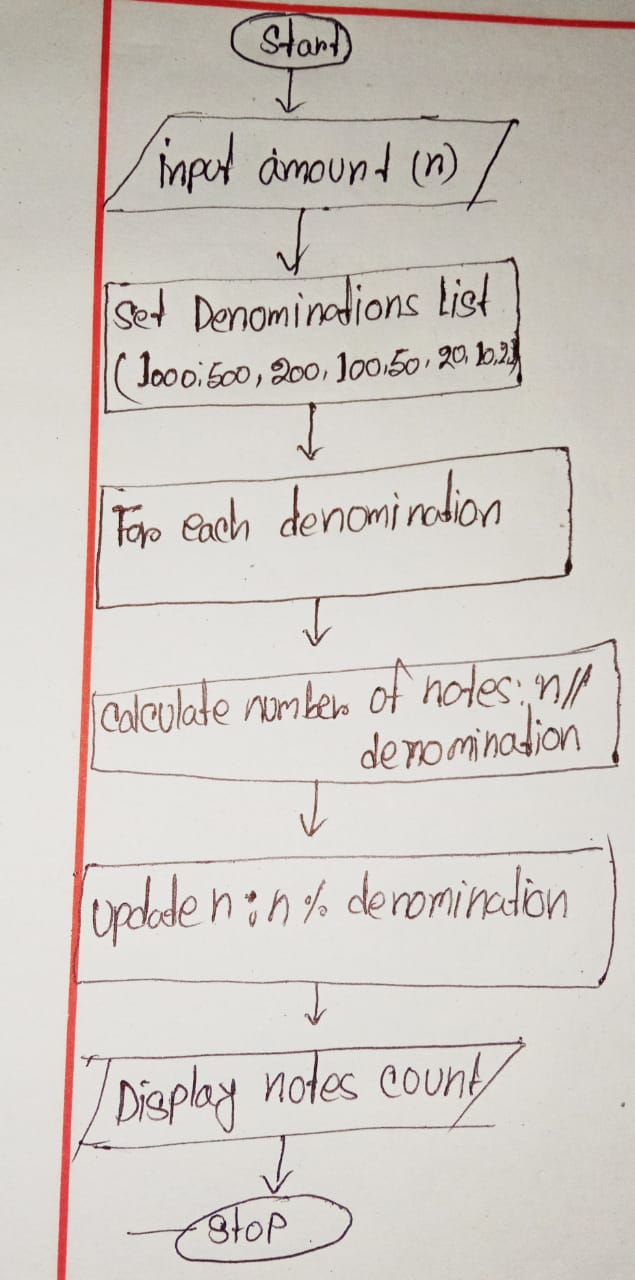 Start
input amount (n)
Set Denominations List
(1000, 500, 200, 100, 50, 20, 10, 2)
For each denomination
Calculate number of notes: n//
denomination
Update n : n % denomination
Display notes count
Stop